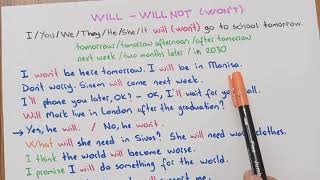 WILL - WILL NOT (WON'T)
I/You/We/They/He/She/It will (won't) go to school tomorrow.
tomorrow / tomorrow afternoon / after tomorrow
next week / two months later / in 2030
I won't be here tomorrow. I will be in Manisa.
Don't worry. Sinem will come next week.
I'll phone you later, OK? - OK, I'll wait for your call.
Will Mark live in London after the graduation?
→ Yes, he will. / No, he won't.
What will she need in Sivas? She will need warm clothes.
I think the world will become worse.
I promise I will do something for the world.